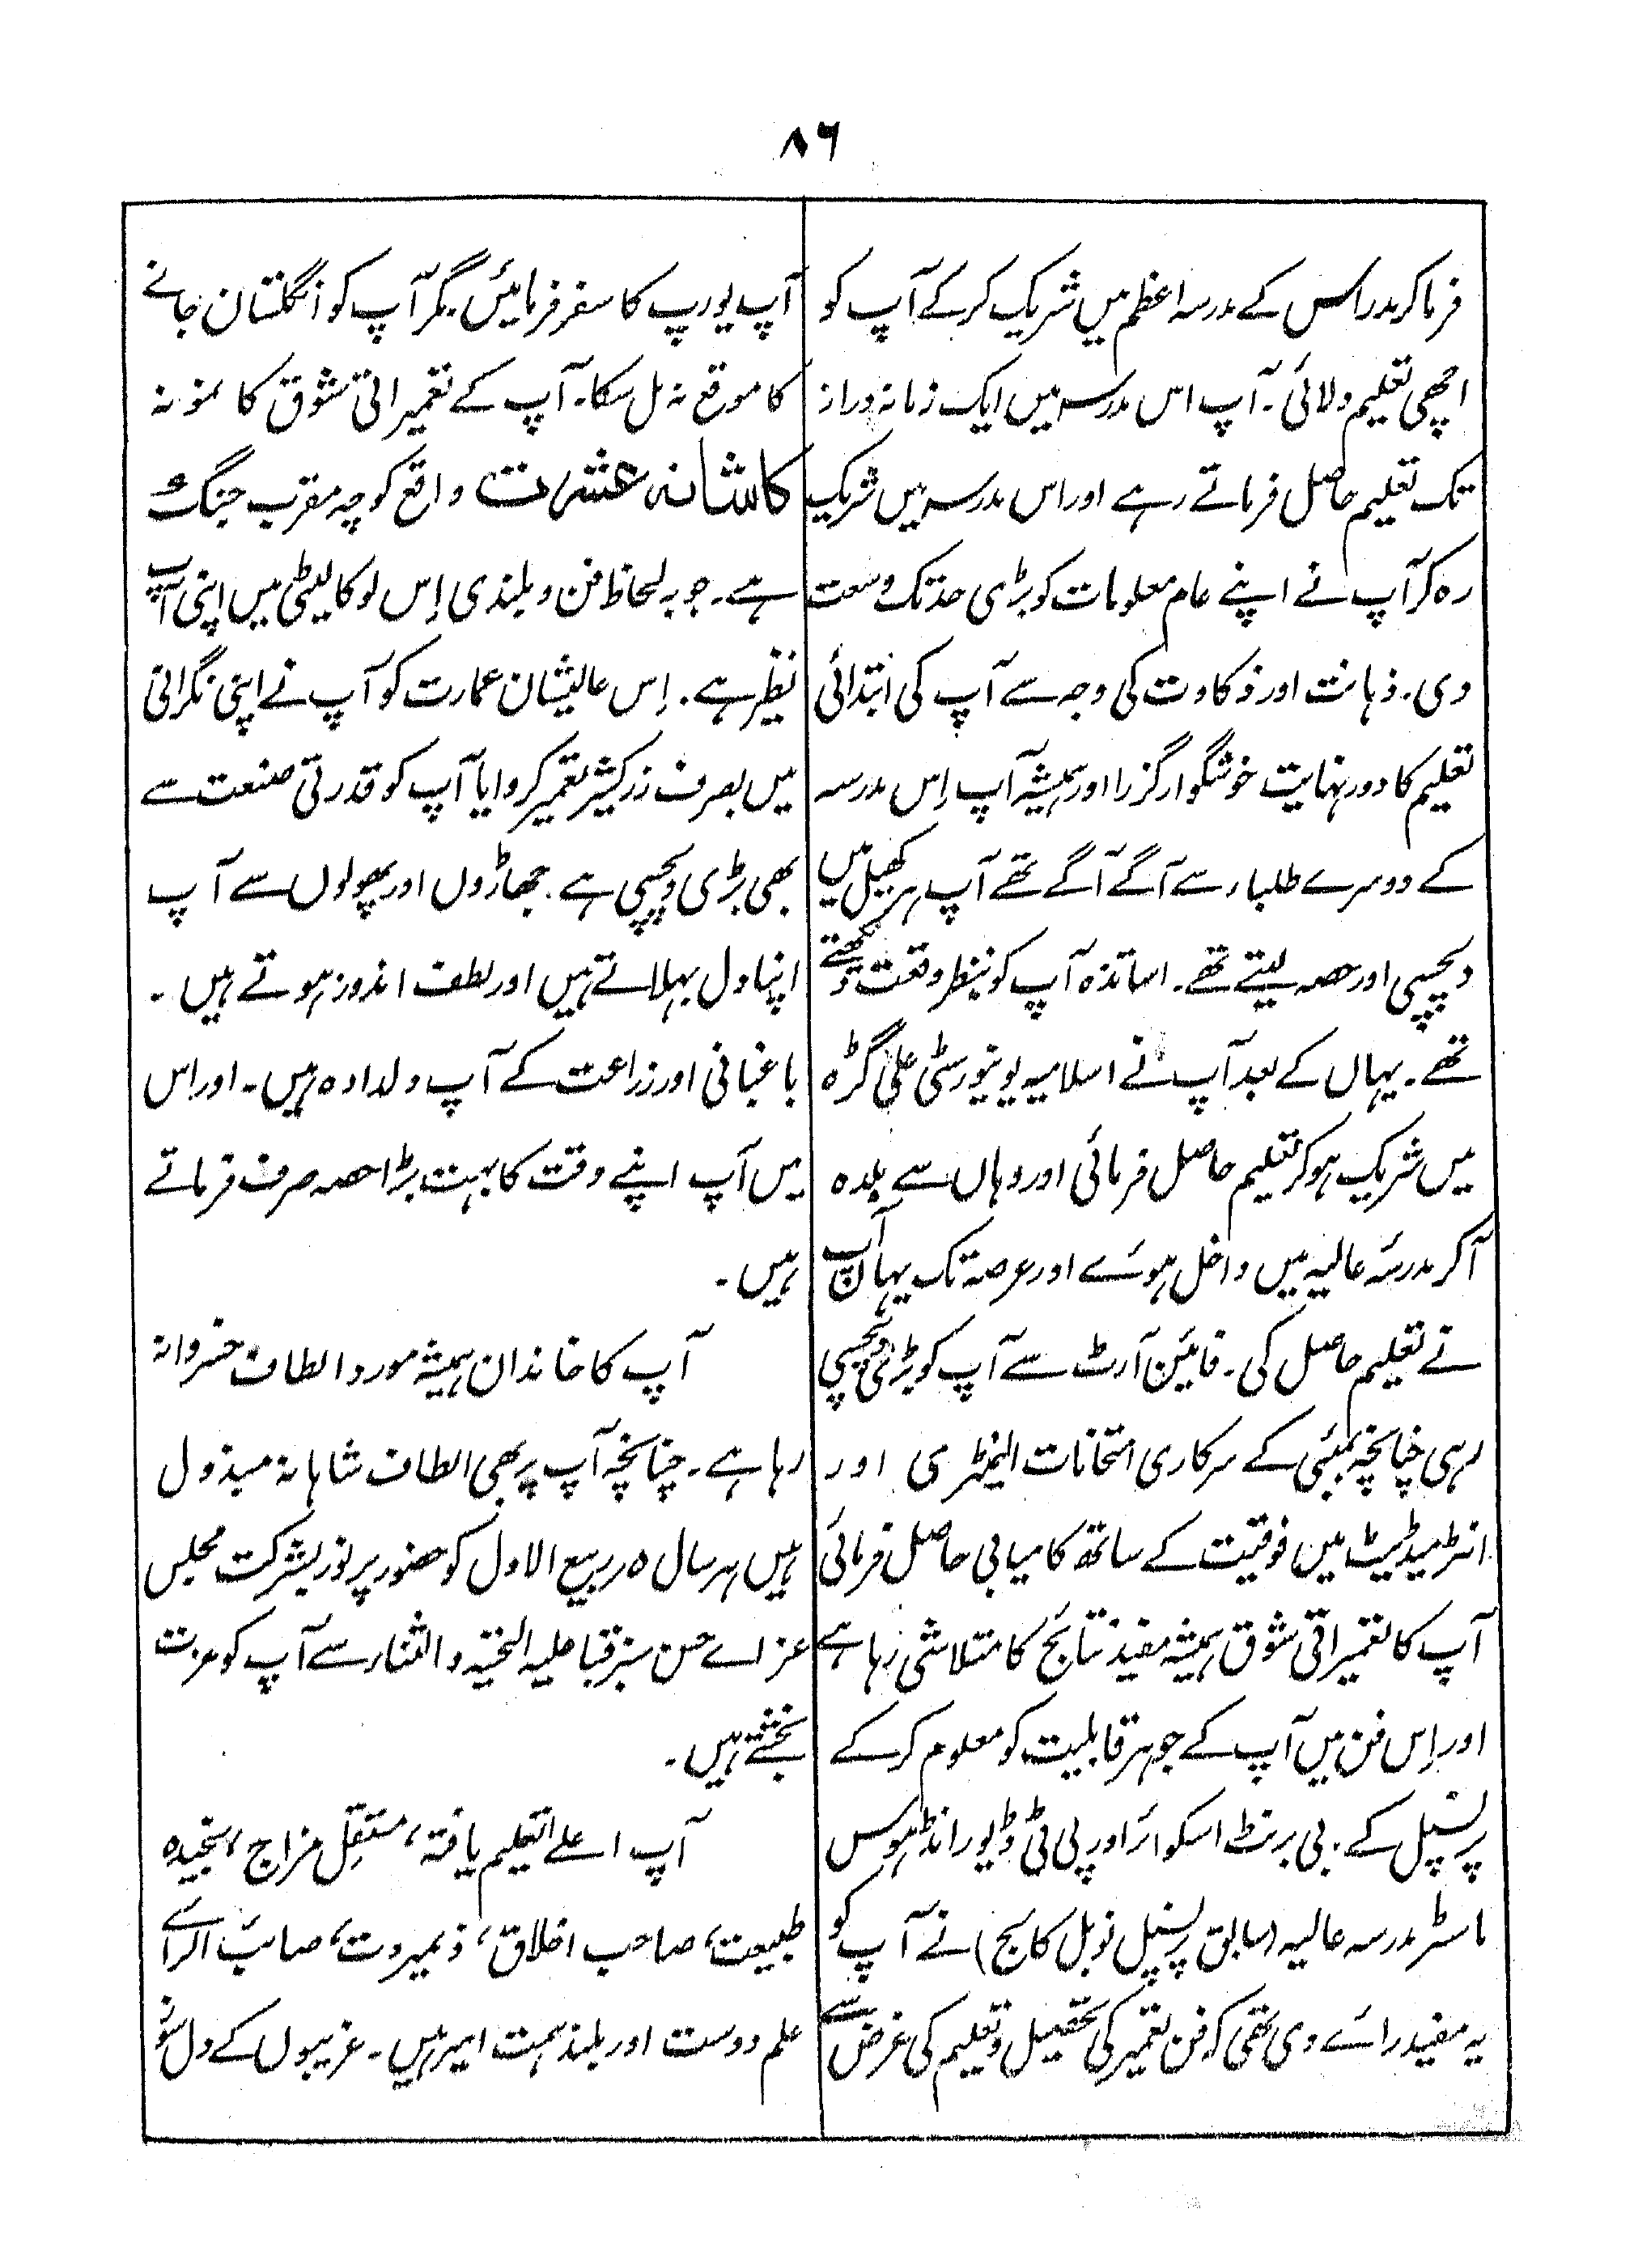 ۸۶
فرما کر مدراس کے مدرسہ اعظم میں شریک کر کے آپ کو
اچھی تعلیم دلائی۔ آپ اس مدرسہ میں ایک زمانہ دراز
تک تعلیم حاصل فرماتے رہے اور اس مدرسہ میں شریک
رہ کر آپ نے اپنے عام معلومات کو بڑی حد تک وسعت
دی۔ ذہانت اور ذکاوت کی وجہ سے آپ کی ابتدائی
تعلیم کا دور نہایت خوشگوار گزرا اور ہمیشہ آپ اِس مدرسہ
کے دوسرے طلباء سے آگے آگے تھے آپ ہر کھیل میں
دلچسپی اور حصہ لیتے تھے۔ اساتذہ آپ کو بنظر وقعت دیکھتے
تھے۔ یہاں کے بعد آپ نے اسلامیہ یونیورسٹی علی گڑہ
میں شریک ہو کر تعلیم حاصل فرمائی اور وہاں سے بلدہ
آکر مدرسۂ عالیہ میں داخل ہوئے اور عرصہ تک یہاں آپ
نے تعلیم حاصل کی۔ فائین آرٹ سے آپ کو بڑی دلچسپی
رہی چنانچہ بمبئی کے سرکاری امتحانات الیمنٹری اور
انٹرمیڈیٹ میں فوقیت کے ساتھ کامیابی حاصل فرمائی
آپ کا تعمیراتی شوق ہمیشہ مفید نتائج کا متلاشی رہا ہے
اور اِس فن میں آپ کے جوہر قابلیت کو معلوم کر کے
پرنسپل کے۔ بی برنٹ اسکوائر اور پی ٹی ڈیورانڈ ہوس
ماسٹر مدرسہ عالیہ (سابق پرنسپل نوبل کالج) نے آپ کو
یہ مفید رائے دی تھی کہ فن تعمیر کی تحصیل و تعلیم کی غرض سے
آپ یورپ کا سفر فرمائیں۔ مگر آپ کو انگلستان جانے
کا موقع نہ مل سکا۔ آپ کے تعمیراتی شوق کا نمونہ
کاشانہ عشرت واقع کوچہ مقرب جنگ
ہے۔ جو بہ لحاظ فن و بلندی اِس لوکالیٹی میں اپنی آپ
نظیر ہے۔ اِس عالیشان عمارت کو آپ نے اپنی نگرانی
میں بصرف زرکثیر تعمیر کروایا آپ کو قدرتی صنعت سے
بھی بڑی دلچسپی ہے۔ جھاڑوں اور پھولوں سے آپ
اپنا دل بہلاتے ہیں اور لطف اندوز ہوتے ہیں۔
باغبانی اور زراعت کے آپ دلدادہ ہیں۔ اور اس
میں آپ اپنے وقت کا بہت بڑا حصہ صرف فرماتے
ہیں۔
آپ کا خاندان ہمیشہ مورد الطاف خسروانہ
رہا ہے۔ چنانچہ آپ پر بھی الطاف شاہانہ مبذول
ہیں ہر سال ۵ ربیع الاول کو حضور پرنور بشرکت مجلس
عزائے حسن سبز قبا علیہ التحیۃ و الثناء سے آپ کو عزت
بخشتے ہیں۔
آپ اعلےٰ تعلیم یافتہ، مستقل مزاج، سنجیدہ
طبیعت، صاحب اخلاق، ذیمروت، صائب الرائے
علم دوست اور بلند ہمت امیر ہیں۔ غریبوں کے دل سوز